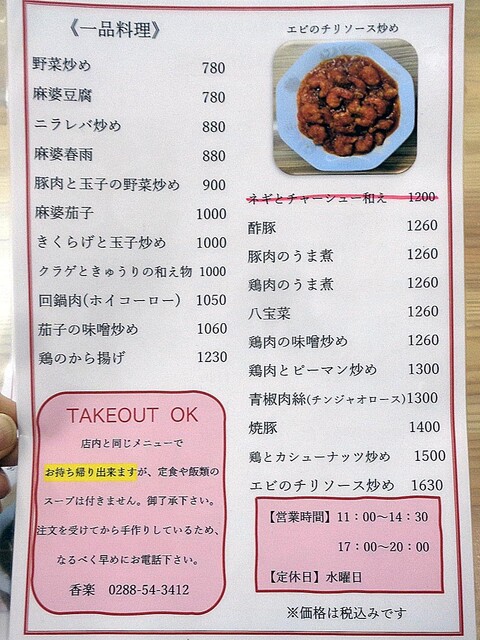 《一品料理》
野菜炒め 780
麻婆豆腐 780
ニラレバ炒め 880
麻婆春雨 880
豚肉と玉子の野菜炒め 900
麻婆茄子 1000
きくらげと玉子炒め 1000
クラゲときゅうりの和え物 1000
回鍋肉(ホイコーロー) 1050
茄子の味噌炒め 1060
鶏のから揚げ 1230
TAKEOUT OK
店内と同じメニューで
お持ち帰り出来ますが、定食や飯類の
スープは付きません。御了承下さい。
注文を受けてから手作りしているため、
なるべく早めにお電話下さい。
香楽 0288-54-3412
エビのチリソース炒め
ネギとチャーシュー和え 1200
酢豚 1260
豚肉のうま煮 1260
鶏肉のうま煮 1260
八宝菜 1260
鶏肉の味噌炒め 1260
鶏肉とピーマン炒め 1300
青椒肉絲(チンジャオロース)1300
焼豚 1400
鶏とカシューナッツ炒め 1500
エビのチリソース炒め 1630
【営業時間】11：00〜14：30
17：00〜20：00
【定休日】水曜日
※価格は税込みです